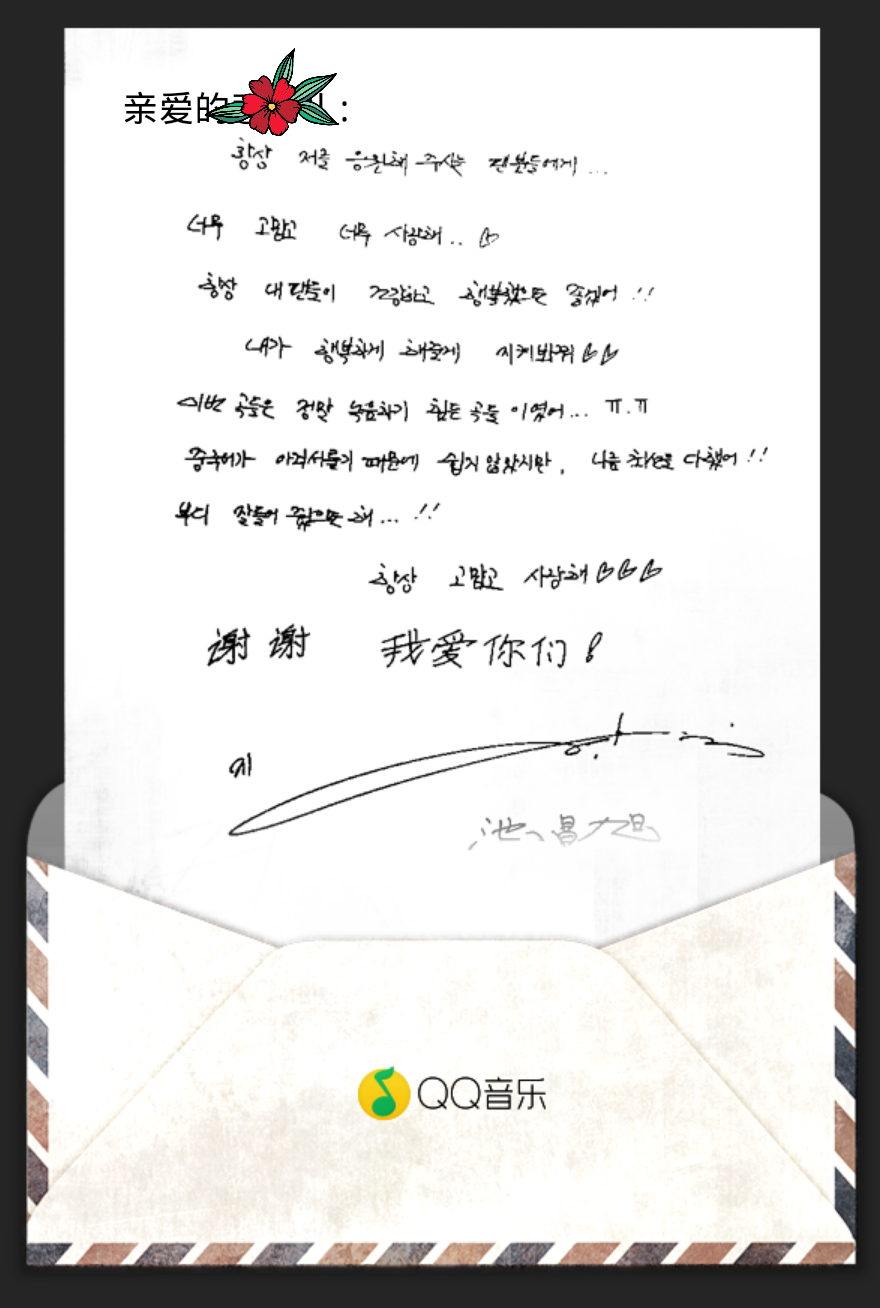 亲爱的 :
항상 저를 응원해 주시는 팬분들에게 ...
너무 고맙고 너무 사랑해 .. ♡
항상 내 팬들이 건강하고 행복했으면 좋겠어 !!
내가 행복하게 해줄게 지켜봐줘 ♡♡
이번 곡들은 정말 녹음하기 힘든 곡들 이였어... ㅠ.ㅠ
중국어가 아직서툴기 때문에 쉽지 않았지만, 나름 최선을 다했어 !!
부디 잘들어 줬으면 해 ... !!
항상 고맙고 사랑해 ♡♡♡
谢谢 我爱你们!
池昌旭
QQ音乐